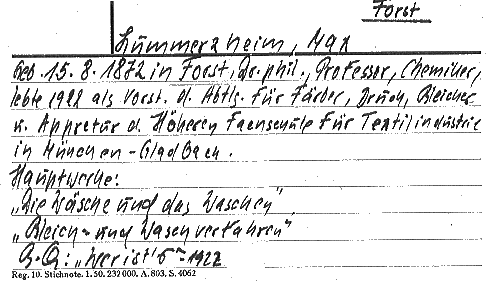 Forst
Hummerzheim, Max
Geb. 15. 8. 1872 in Forst, Dr. phil., Professor, Chemiker,
lebte 1922 als Vorst. d. Abtlg. für Färber, Druck, Bleicher
u. Appretur d. Höheren Fachschule für Textilindustrie
in München-Gladbach.
Hauptwerke:
„Die Wäsche und das Waschen"
„Bleich- und Waschverfahren"
"Wer ist's" 1922
Reg. 10. Stichnote. 1. 50. 232 000. A. 803. S. 4062